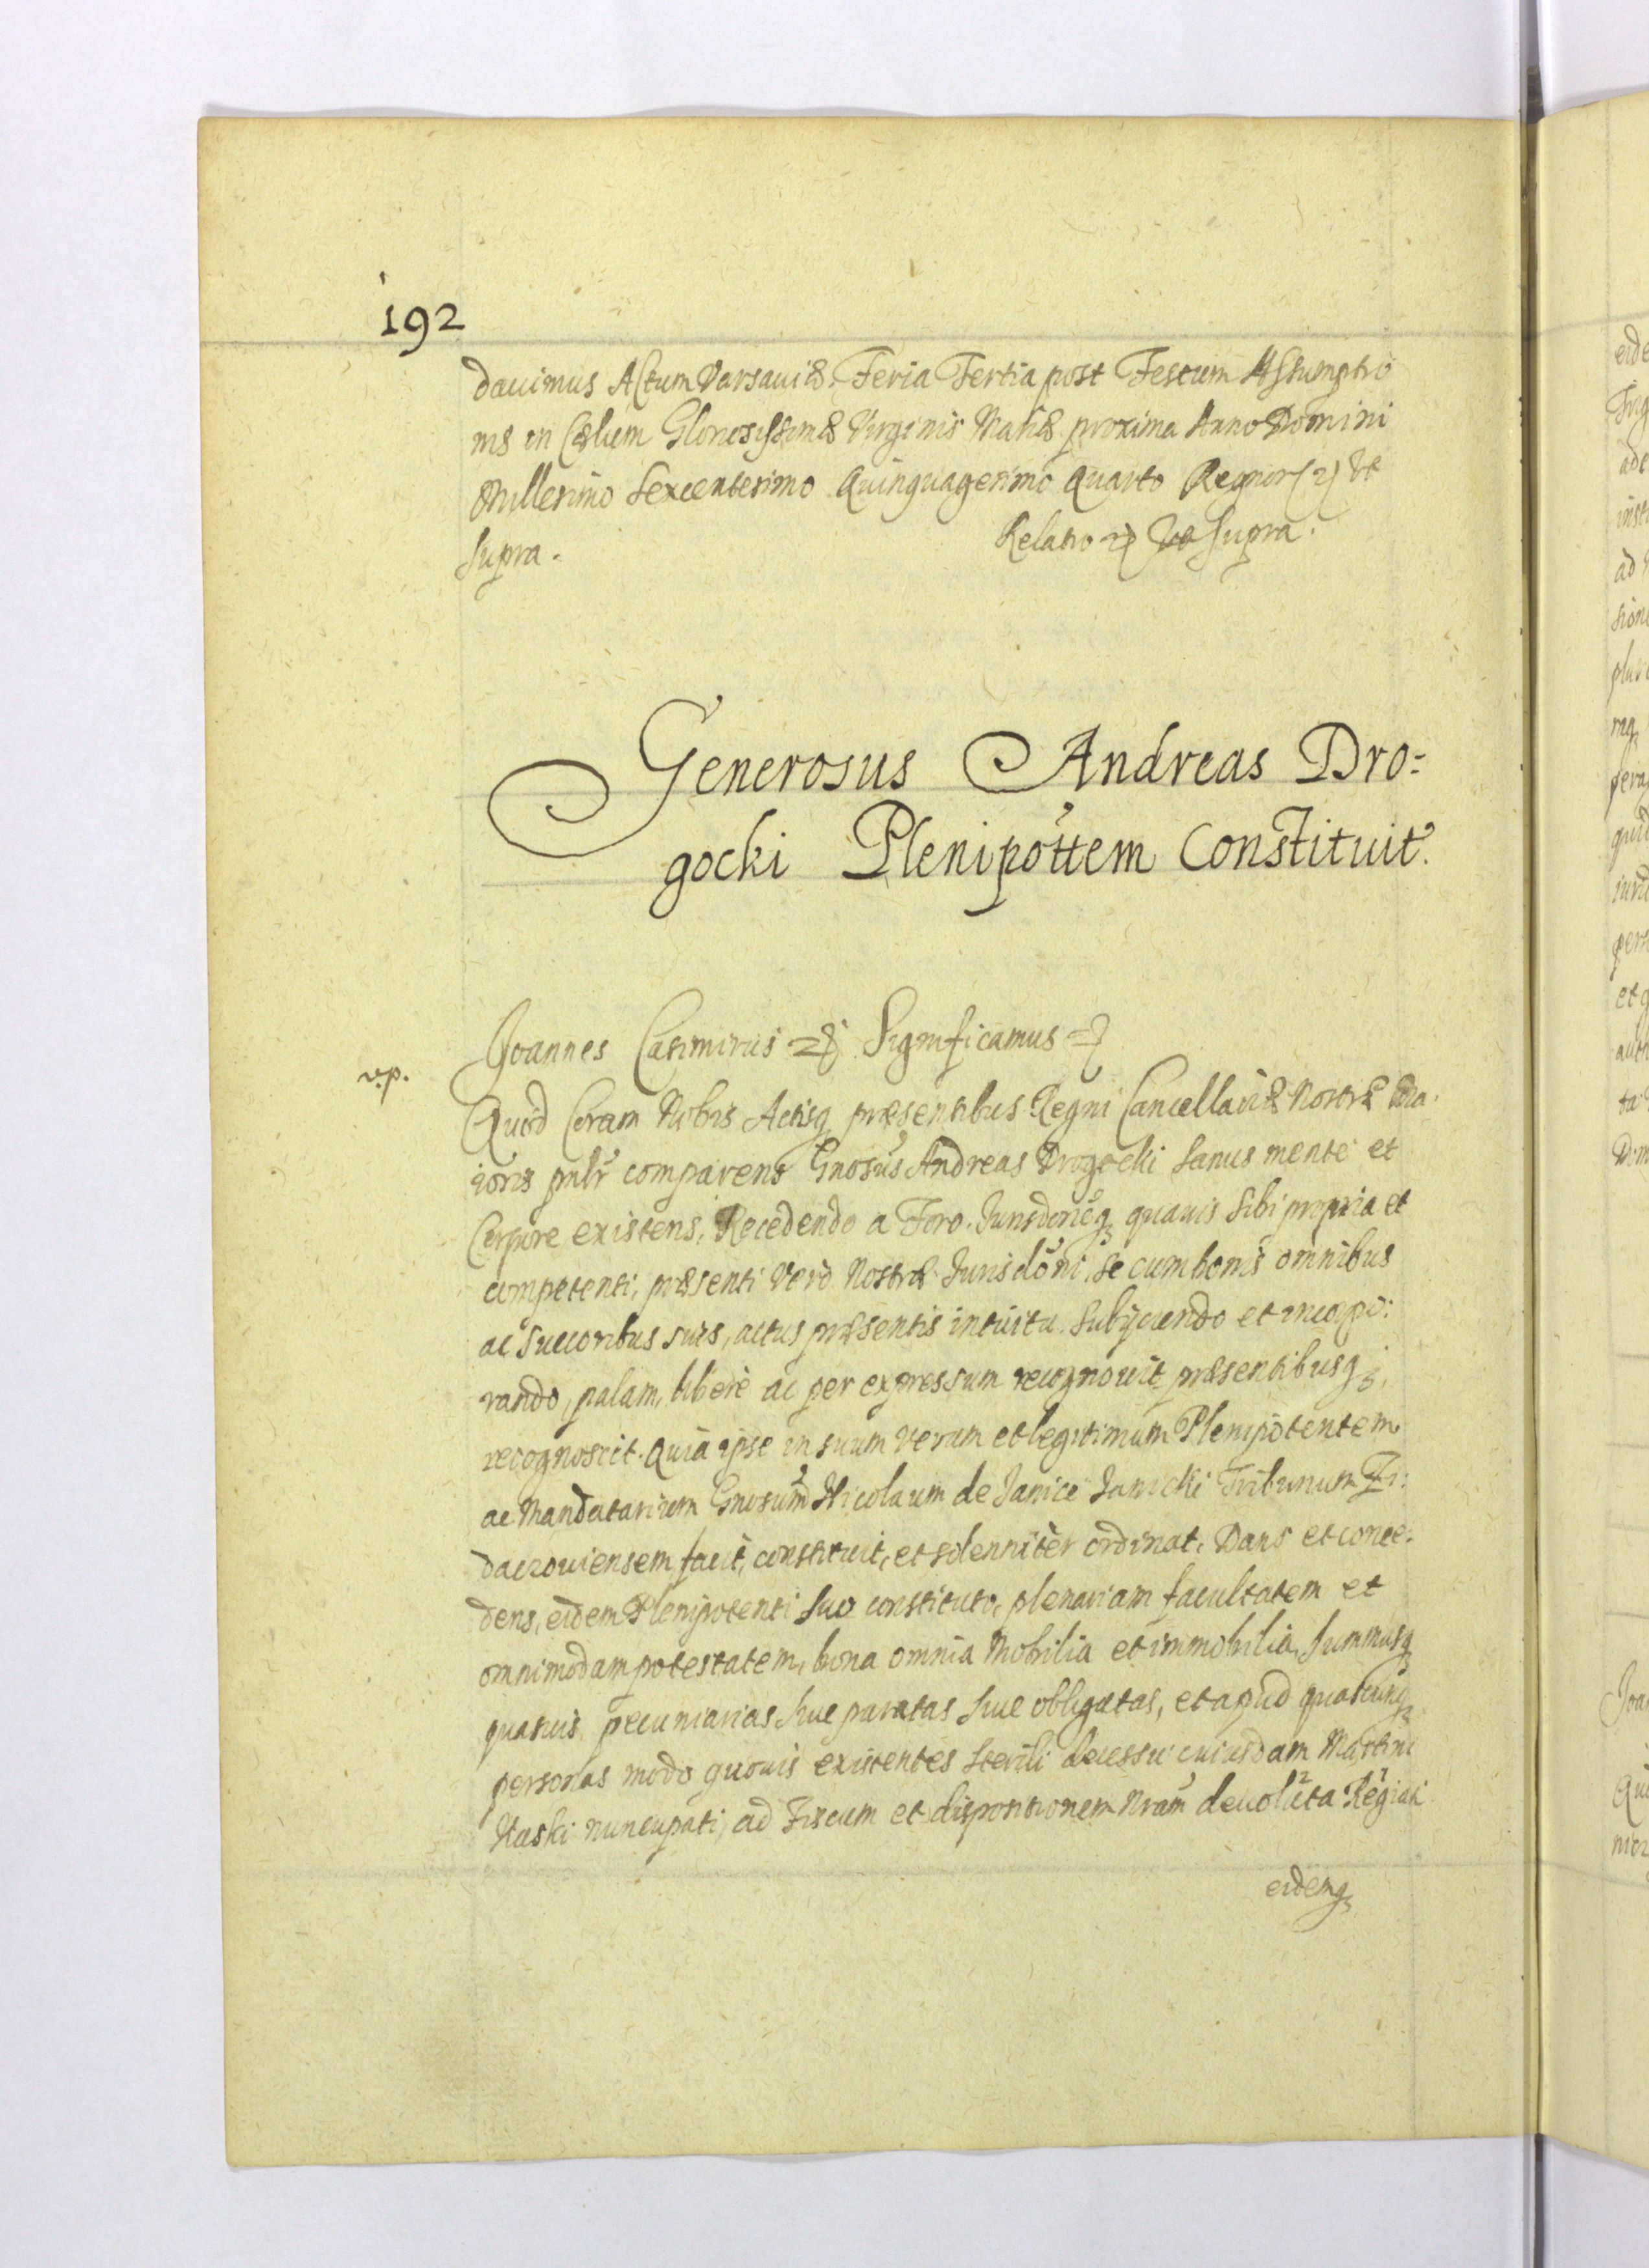 192
dauimus Actum Varsauiæ. Feria Tertia post Festum Assumptio
nis in Cælum Gloriosissimæ Virginis Mariæ proxima Anno Domini
Millesimo Sexcentesimo Quinquagesimo Quarto Regnor(2) Vt
supra.
Relatio Vt supra.
Generosus Andreas Dro=
gocki Plenipottem Constituit.
Joannes Casimirus Significamus
v.p.
Quod Coram Nobis Actisq præsentibus Regni Cancellariæ Nostræ Ma.
ioris pnlr comparens Gnosus Andreas Drogocki sanus mente et
Corpore existens, Recedendo a Foro. Jurisdoneq quauis sibi propria et
competenti, præsenti Vero Nostræ Jurisdoni, se cum bonis omnibus
ac Succoribus suis, actus præsentis intuitu. subijciendo et incorpo:
rando, palam, libere ac per expressum recognouit præsentibusq3,
recognoscit. Quia ipse in suum verum et legitimum Plenipotentem
ac Mandatarium Gnosum Nicolaum de Janice Janicki Tribunum Zi:
daczouiensem facit, constituit, et solenniter ordinat. Dans et conce.
dens, eidem Plenipotenti suo constituto, plenariam facultatem et
omnimodam potestatem, bona omnia Mobilia et immobilia, summasq
quasuis pecuniarias siue paratas siue obligatas, et apud quascunq
personas modo quouis existentes sterili decessu cuiusdam Martini
Haski nuncupati, ad Fiscum et dispositionem Nram deuoluta Regiam
eidemq